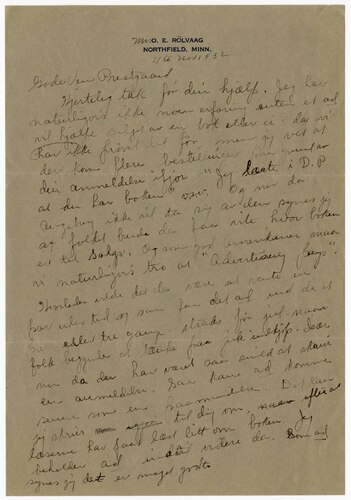 Mrs. O. E. RÖLVAAG
NORTHFIELD, MINN.
11te Nov 1932
Gode Ven Prestgaard
Hjertelig tak for din hjelp. Jeg har
naturligvis ikke noen erfaring enten et ad
vil hjelpe salget av en bok eller ei - da vi
har ikke prövet det för. men jeg vet at
der kom flere bestillinger paa grund av
din anmeldelse ifjor. "Jeg læste i D.P
at du har boken" osv. Og nu da
Augsburg ikke vil ta sig av den synes jeg
at folket burde da faa vite hvor boken
er til Salgs. Og som god amerikaner maa
vi naturligvis tro at "Advertising Pays".
Hvorledes vilde det da være at vente en
par uker til og saa faa det ad ind da et
to eller tre gange straks för jul. naar
folk begynder at tænke paa jule indkjöp.
men da du har været saa snild at skrive
en anmeldelse. Saa kan ad komme
senere som en paamindelse. Det kan
jeg skrive til dig om, naar efter at
læserne har faat læst litt om boken. Jeg
beholder ad indtil videre da.
synes jeg det er meget godt.